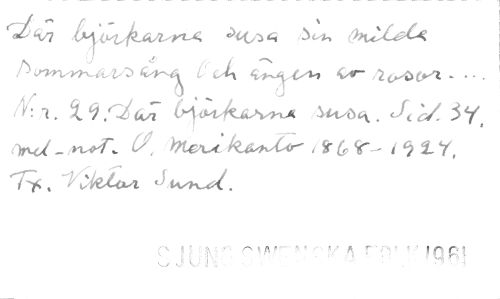 Där björkarna susa sin milda
sommarsång Och ängen av rosor....
N:r. 29. Där björkarna susa. Sid. 34,
mel-not. O. Merikanto 1868-1924.
Tx. Viktor Sund.
SJUNG SVENSKA FOLK 1961